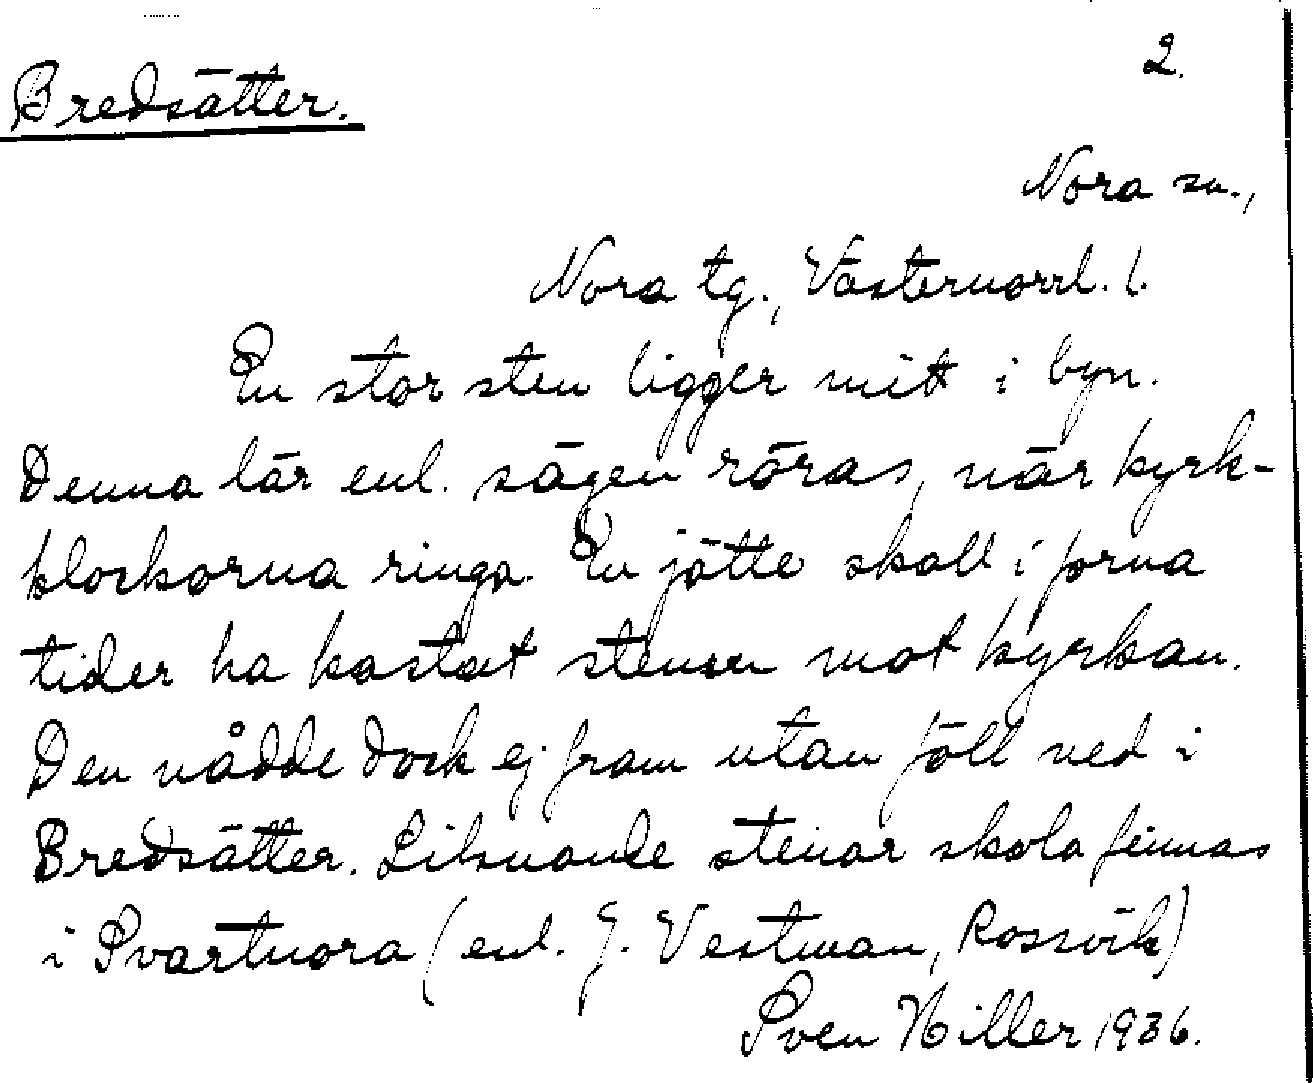 2.
Bredsätter.
Nora sn.,
Nora tg., Västernorrl. l.
En stor sten ligger mitt i byn.
Denna lär enl. sägen röras, när kyrk-
klockorna ringa. En jätte skall i forna
tider ha kastat stenen mot kyrkan.
Den nådde dock ej fram utan föll ned i
Bredsätter. Liknande stenar skola finnas
i Svartnora (enl. J. Vestman, Rossvik)
Sven Hiller 1936.